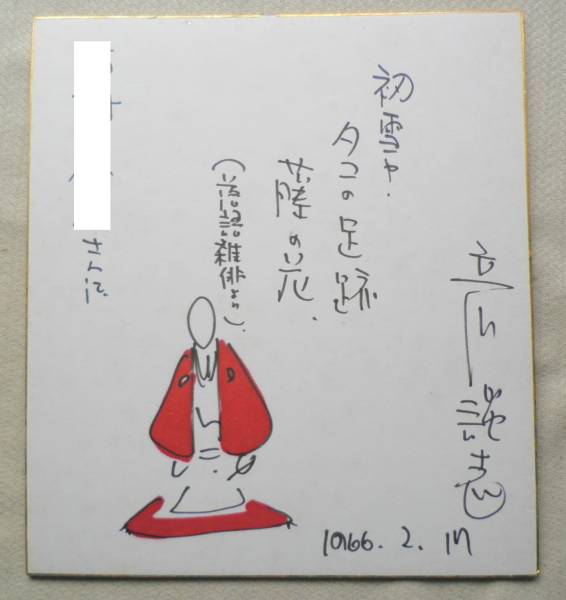 初雪や.
タコの足跡
の花.
(落語雑俳より).
立川談志
さんに.
1966. 2. 17